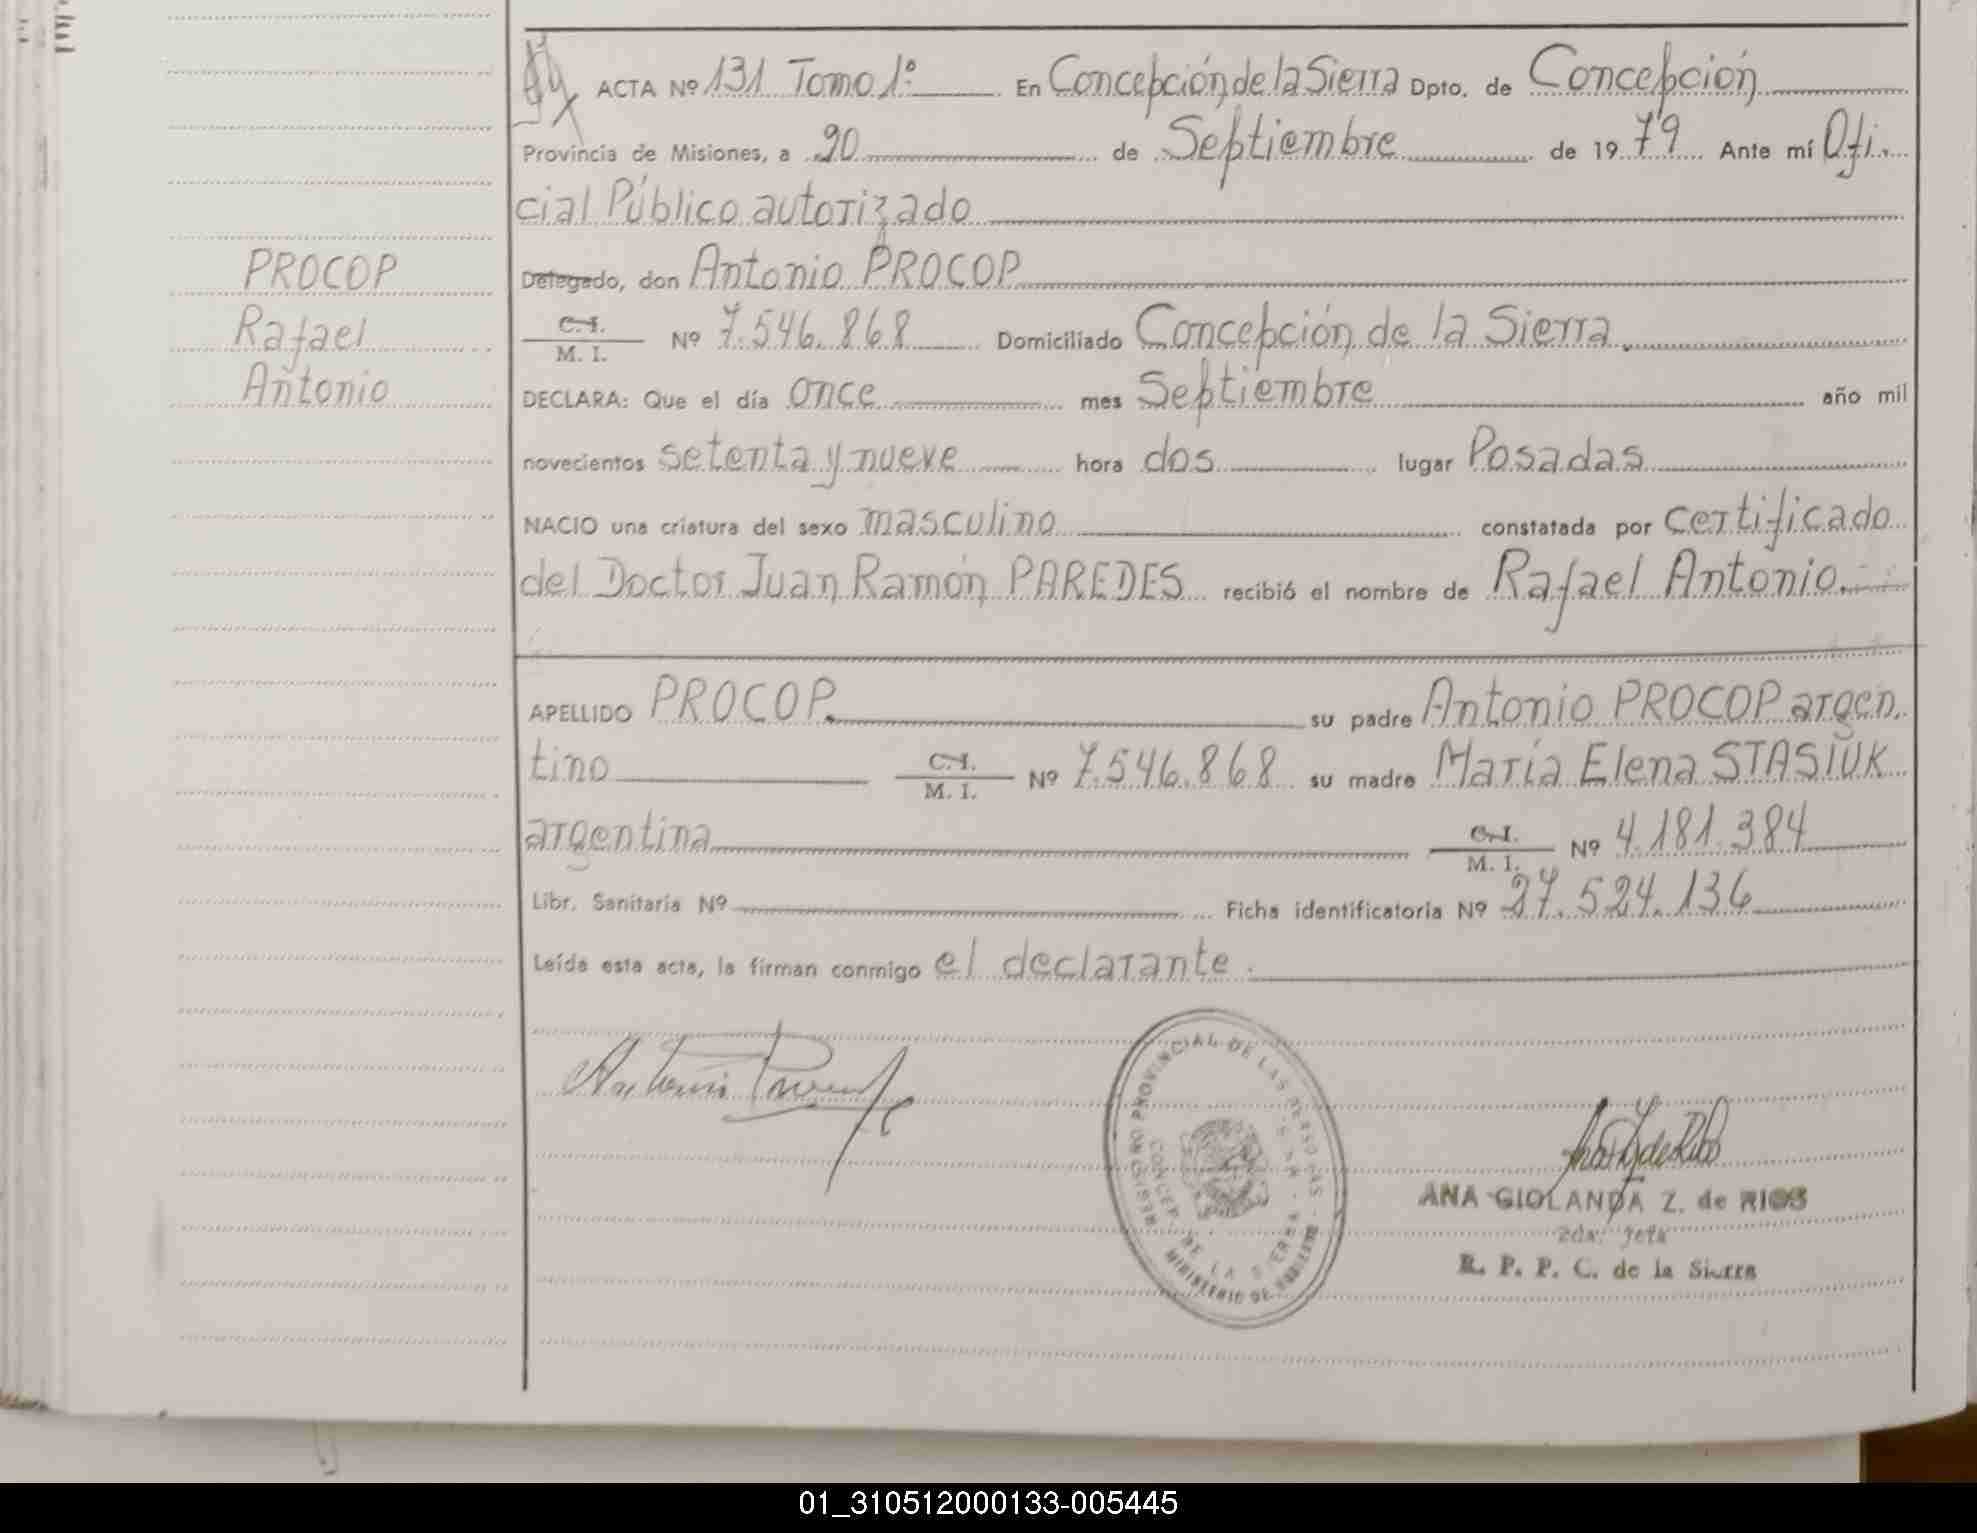 ACTA Nº 131 Tomo 1º En Concepción de la Sierra Dpto. de Concepción
Provincia de Misiones, a 20 de Septiembre de 1979 Ante mí Ofi-
cial Público autorizado
PROCOP
Rafael
Antonio
Delegado, don Antonio PROCOP
C. I.
M. I. Nº 7.546.868 Domiciliado Concepción de la Sierra.
DECLARA: Que el día once mes Septiembre año mil
novecientos setenta y nueve hora dos lugar Posadas
NACIO una criatura del sexo masculino constatada por certificado
del Doctor Juan Ramón PAREDES recibió el nombre de Rafael Antonio.
APELLIDO PROCOP. su padre Antonio PROCOP argen-
tino C. I.
M. I. Nº 7.546.868 su madre María Elena STASIUK
argentina C. I.
M. I. Nº 4.181.384
Libr. Sanitaria Nº Ficha identificatoria Nº 27.524.136
Leída esta acta, la firman conmigo el declarante.
REGISTRO PROVINCIAL DE LAS PERSONAS
CONCEP. DE LA SIERRA
MINISTERIO DE GOBIERNO
ANA GIOLANDA Z. de RIOS
2da. Jefa
R. P. P. C. de la Sierra
01_310512000133-005445